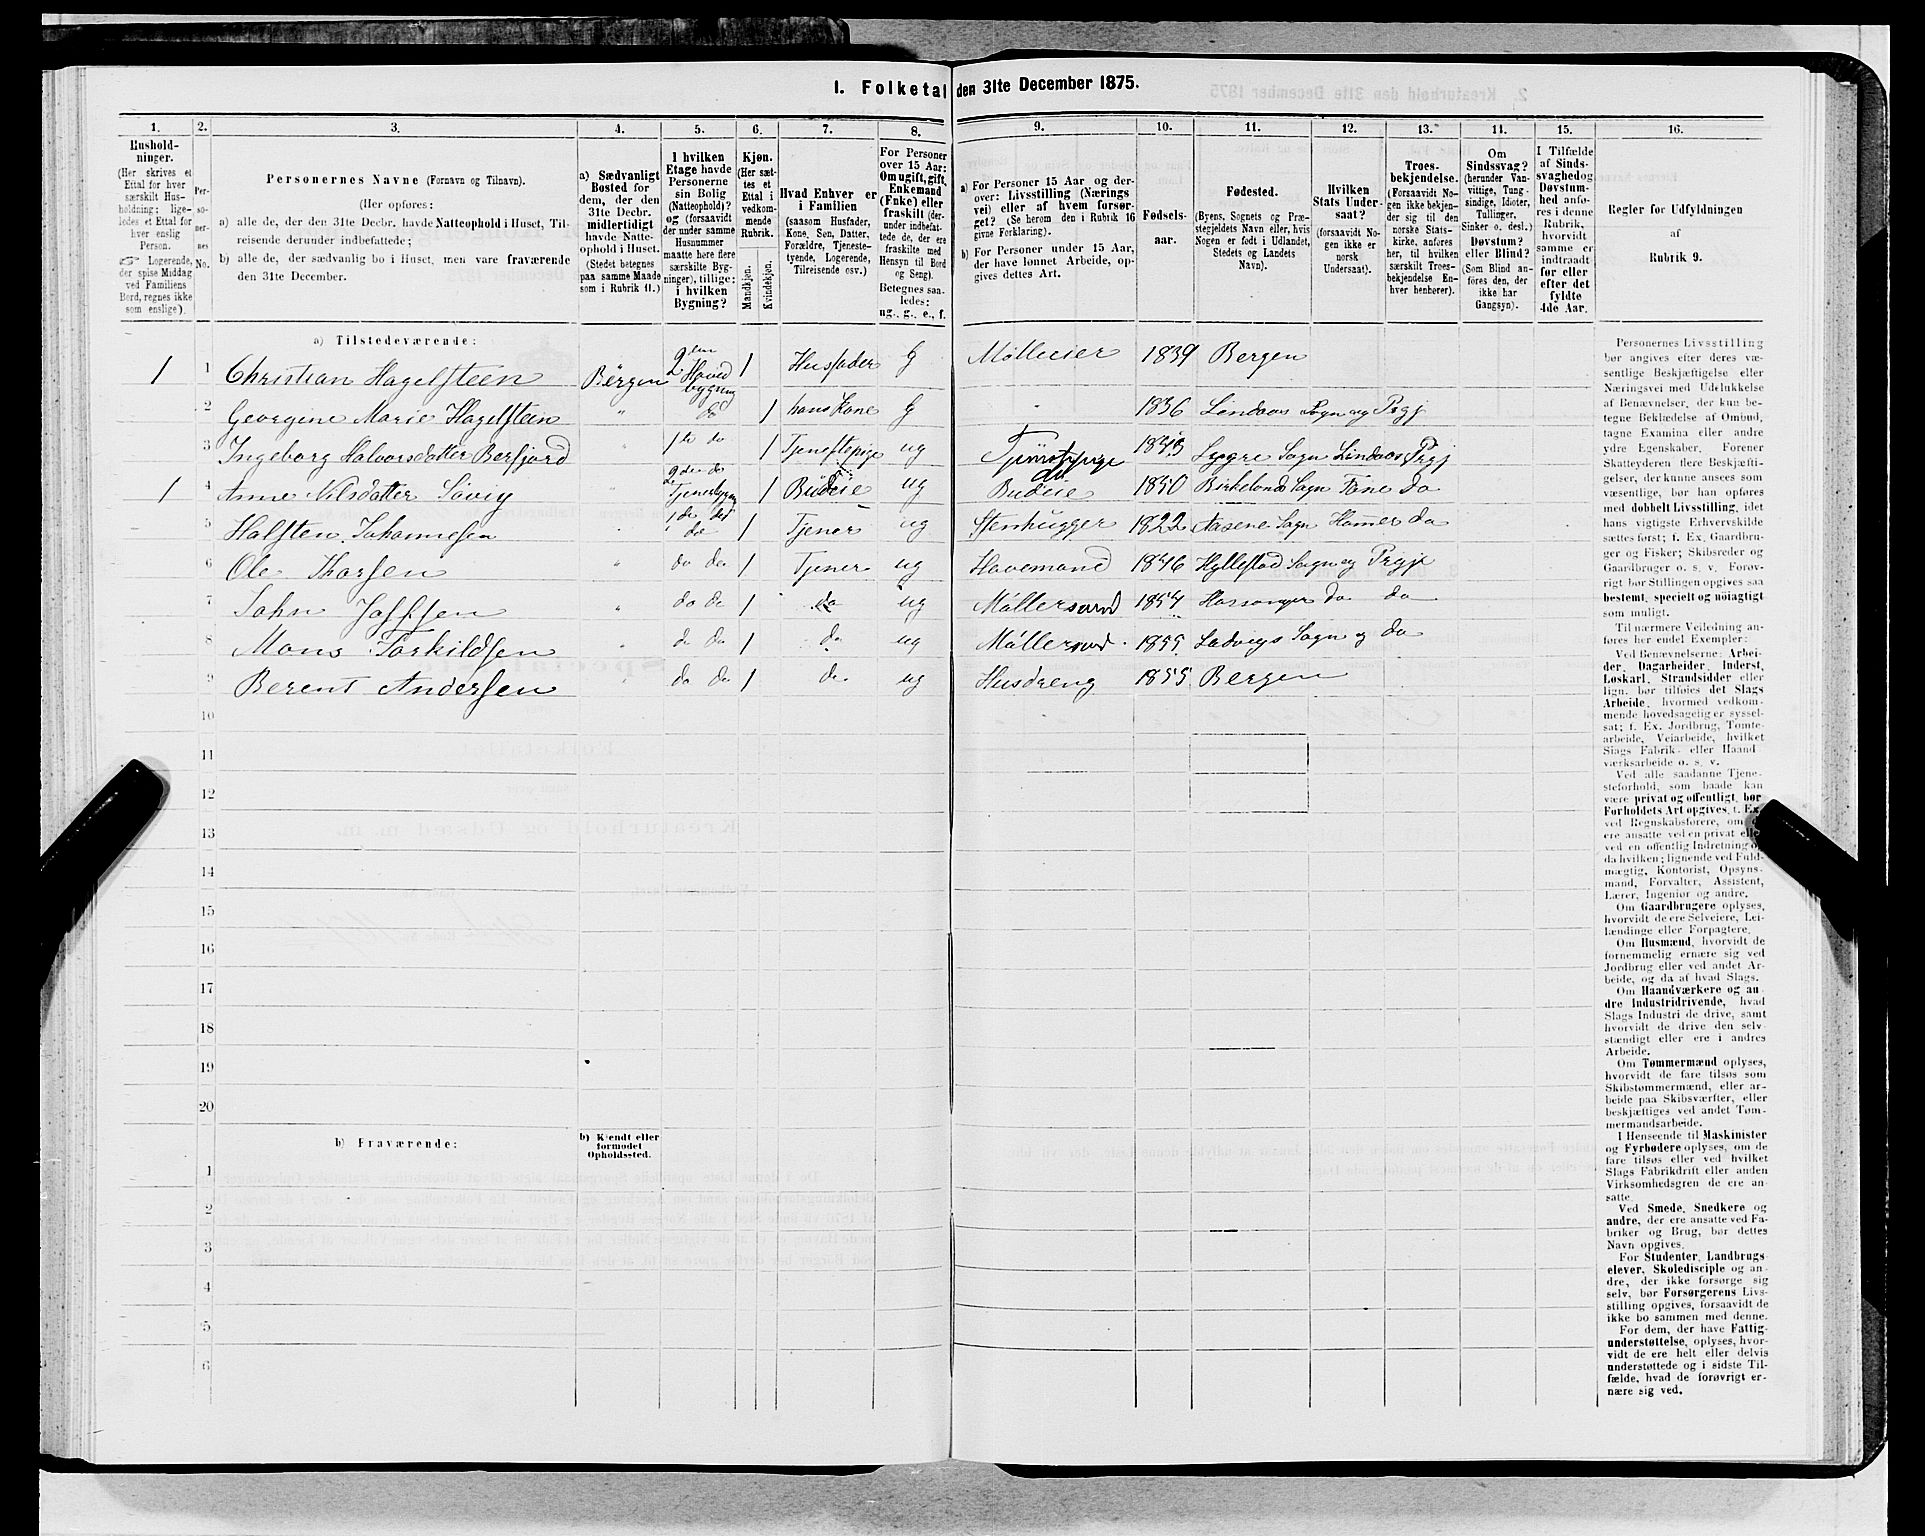 I. Folketal den 31te December 1875.
1. 2. 3. 4. 5. 6. 7. 8. 9. 10. 11. 12. 13. 14. 15. 16.
Hushold-
ninger.
(Her skrives et
Ettal for hver
særskilt Hus-
holdning; lige-
ledes et Ettal for
hver enslig
Person.
☞ Logerende,
der spise Middag
ved Familiens
Bord, regnes ikke
som enslige).
Per-
so-
ner-
nes
No.
Personernes Navne (Fornavn og Tilnavn).
(Her opføres:
a) alle de, der den 31te Decbr. havde Natteophold i Huset, Til-
reisende derunder indbefattede;
b) alle de, der sædvanlig bo i Huset, men vare fraværende
den 31te December.
a) Sædvanligt
Bosted for
dem, der den
31te Decbr.
midlertidigt
havde Natte-
ophold i Huset.
(Stedet betegnes
paa samme Maade
som i Rubrik 11.)
I hvilken
Etage havde
Personerne
sin Bolig
(Natteophold)?
og (forsaavidt
der under samme
Husnummer
maatte høre flere
særskilte Byg-
ninger), tillige:
i hvilken
Bygning?
Kjøn.
(Her sæt-
tes et
Ettal i
vedkom-
mende
Rubrik.
Mandkjøn.
Kvindekjøn.
Hvad Enhver er
i Familien
(saasom Husfader,
Kone, Søn, Datter,
Forældre, Tjeneste-
tyende, Logerende,
Tilreisende osv.)
For Personer
over 15 Aar:
Om ugift, gift,
Enkemand
(Enke) eller
fraskilt (der-
under indbefat-
tede de, der ere
fraskilte med
Hensyn til Bord
og Seng).
Betegnes saa-
ledes:
ug., g., e., f.
a) For Personer 15 Aar og der-
over: Livsstilling (Nærings
vei) eller af hvem forsør-
get? (Se herom den i Rubrik 16
givne Forklaring).
b) For Personer under 15 Aar,
der have lønnet Arbeide, op-
gives dettes Art.
Fødsels-
aar.
Fødested.
(Byens, Sognets og Præ-
stegjeldets Navn eller, hvis
Nogen er født i Udlandet,
Stedets og Landets
Navn).
Hvilken
Stats Under-
saat?
(forsaavidt No-
gen ikke er
norsk
Undersaat).
Troes-
bekjendelse.
(Forsaavidt No-
gen ikke bekjen-
der sig til den
norske Stats-
kirke, anføres
her, til hvilken
særskilt Troes-
bekjendelse En-
hver henhører).
Om
Sindssvag?
(herunder Van-
vittige, Tung-
sindige, Idioter,
Tullinger,
Sinker o. desl.)
Døvstum?
eller Blind?
(Som Blind an-
føres den, der
ikke har
Gangsyn).
I Tilfælde
af Sinds-
svaghed og
Døvstum-
hed anfø-
res i denne
Rubrik,
hvorvidt
samme er
indtraadt
før eller
efter det
fyldte
4de Aar.
Regler for Udfyldningen
af
Rubrik 9.
a) Tilstedeværende:
1 1 Christian Hagelsteen Bergen 2den Hoved bygning 1 Husfader G Mølleeier 1839 Bergen
2 Georgine Marie Hagelsteen " do 1 hans Kone G " 1836 Lindaas Sogn og Prgj
3 Ingeborg Halvorsdatter Berfjord " 1te do 1 Tjenestepige ug Tjenestepige 1843 Lygre Sogn Lindaas Prgj
1 4 Anne Nilsdatter Søvig 1 Budeie ug Budeie 1850 Birkelands Sogn Fane do
5 Halsten Johannesen " do 1 Tjener ug Stenhugger 1822 Aasene Sogn Hammer do
6 Ole Thorsen " do do 1 Tjener ug Havemand 1846 Hyllestad Sogn og Prgj
7 John Joffsen " do do 1 do ug Møllersvend 1854 Hossanger do do
8 Mons Torkildsen " do do 1 do ug Møllersvend 1855 Ladvigs Sogn og do
9 Berent Andersen " do do 1 do ug Husdreng 1855 Bergen
10
11
12
13
14
15
16
17
18
19
20
b) Fraværende:
b) Kjendt eller
formodet
Opholdssted.
1
2
3
4
5
6
Personernes Livsstilling
bør angives efter deres væ-
sentlige Beskjæftigelse eller
Næringsvei med Udelukkelse
af Benævnelser, der kun be-
tegne Beklædelse af Ombud,
tagne Examina eller andre
ydre Egenskaber. Forener
Skatteyderen flere Beskjæfti-
gelser, der kunne ansees som
væsentlige, bør han opføres
med dobbelt Livsstilling, idet
hans vigtigste Erhvervskilde
sættes først; f. Ex. Gaardbru-
ger og Fisker; Skibsreder og
Gaardbruger o. s. v. Forøv-
rigt bør Stillingen opgives saa
bestemt, specielt og nøiagtigt
som muligt.
Til nærmere Veiledning an-
føres her endel Exempler:
Ved Benævnelserne: Arbei-
der, Dagarbeider, Inderst,
Løskarl, Strandsidder eller
lign. bør tilføies det Slags
Arbeide, hvormed vedkom-
mende hovedsagelig er syssel-
sat; f. Ex. Jordbrug, Tomte-
arbeide, Veiarbeide, hvilket
Slags Fabrik- eller Haand-
værksarbeide o. s. v.
Ved alle saadanne Tjene-
steforhold, som baade kan
være privat og offentligt, bør
Forholdets Art opgives, t. Ex.
ved Regnskabsførere, om
ere ansatte ved en privat
ved en offentlig Indretning
da hvilken; lignende ved Fuld-
mægtig, Kontorist, Opsyns-
mand, Forvalter, Assistent,
Lærer, Ingeniør og andre.
Om Gaardbrugere oplyses,
hvorvidt de ere Selveiere, Lei-
lændinge eller Forpagtere.
Om Husmænd, hvorvidt de
fornemmelig ernære sig ved
Jordbrug eller ved andet Ar-
beide, og da af hvad Slags.
Om Haandværkere og an-
dre Industridrivende, hvad
Slags Industri de drive, samt
hvorvidt de drive den selv-
stændigt eller ere i andres
Arbeide.
Om Tømmermænd oplyses,
hvorvidt de fare tilsøs som
Skibstømmermænd, eller ar-
beide paa Skibsværfter, eller
beskjæftiges ved andet Tøm-
mermandsarbeide.
I Henseende til Maskinister
og Fyrbødere oplyses, om de
fare tilsøs eller ved hvilket
Slags Fabrikdrift eller anden
Virksomhedsgren de ere an-
satte.
Ved Smede, Snedkere og
andre, der ere ansatte ved Fa-
briker og Brug, bør dettes
Navn opgives.
For Studenter, Landbrugs-
elever, Skoledisciple og an-
dre, der ikke forsørge sig
selv, bør Forsørgerens Livs-
stilling opgives, forsaavidt de
ikke bo sammen med denne.
For dem, der have Fattig-
understøttelse, oplyses, hvor-
vidt de ere helt eller delvis
understøttede og i sidste Til-
fælde, hvad de forøvrigt er-
nære sig ved.